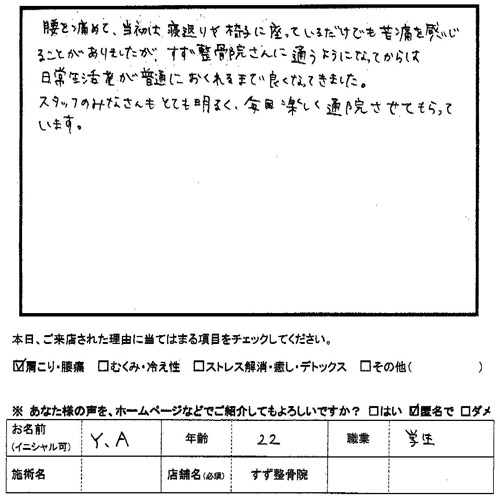 腰を痛めて、当初は寝返りや椅子に座っているだけでも苦痛を感じ
ることがありましたが、すず整骨院さんに通うようになってからは
日常生活が普通におくれるまで良くなってきました。
スタッフのみなさんもとても明るく、毎日楽しく通院させてもらって
います。
本日、ご来店された理由に当てはまる項目をチェックしてください。
☑肩こり・腰痛 □むくみ・冷え性 □ストレス解消・癒し・デトックス □その他( )
※ あなた様の声を、ホームページなどでご紹介してもよろしいですか？ □はい ☑匿名で □ダメ
お名前 (イニシャル可) Y.A 年齢 22 職業 学生
施術名 店舗名(必須) すず整骨院